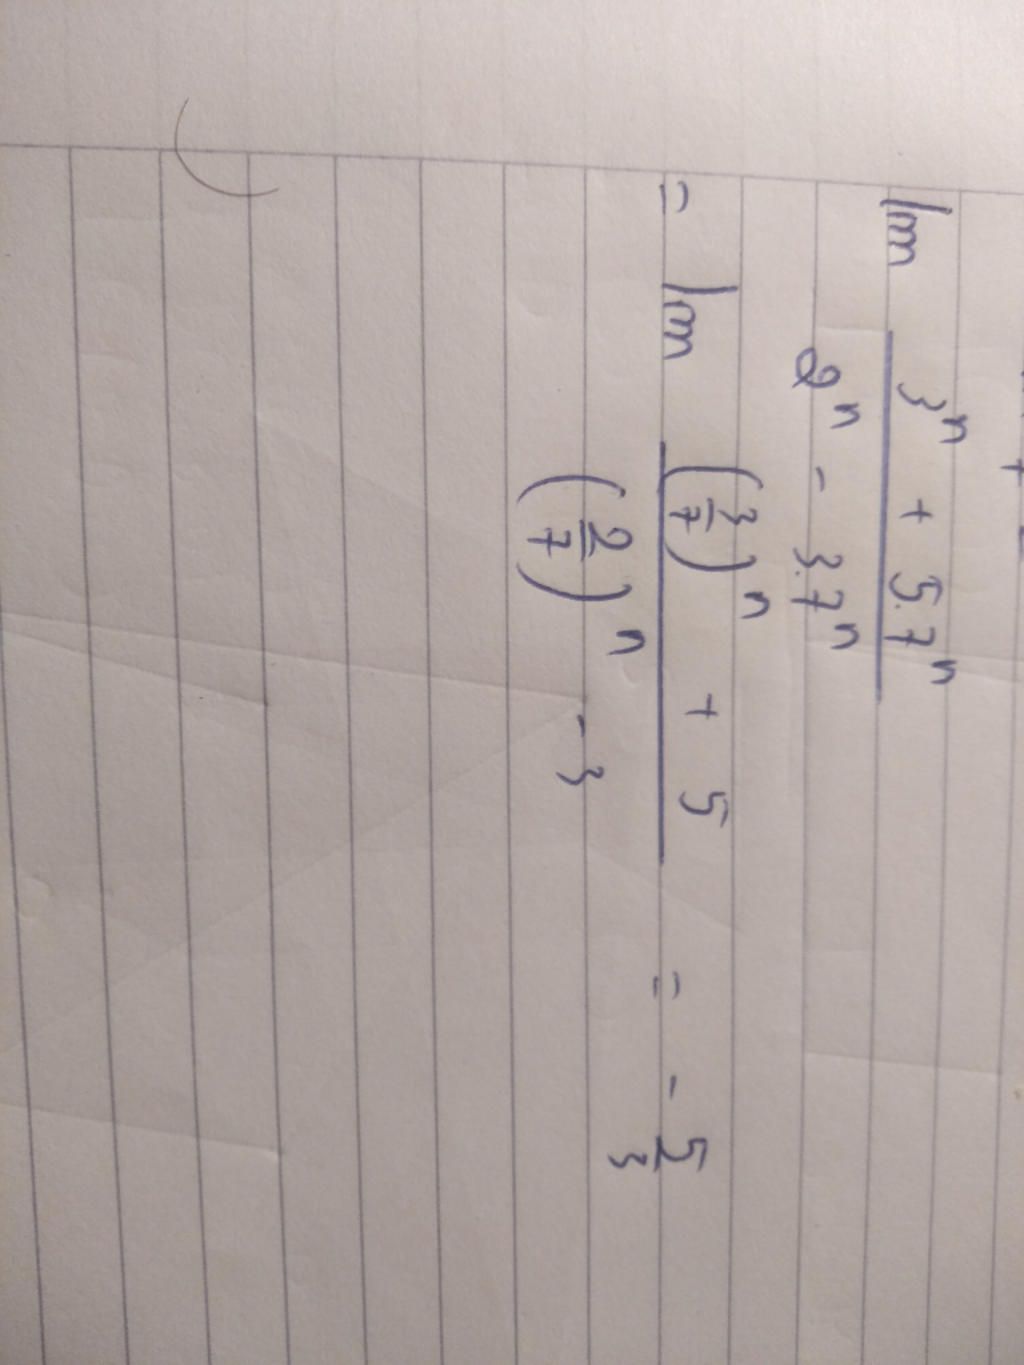 lim (3^n + 5.7^n)/(2^n - 3.7^n)
= lim ((3/7)^n + 5)/((2/7)^n - 3) = - 5/3